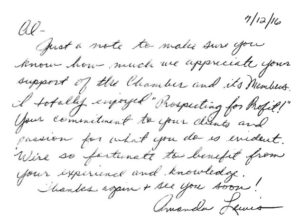 9/12/16
Al-
Just a note to make sure you
know how much we appreciate your
support of the Chamber and its Members.
I totally enjoyed "Prospecting for Profit!"
Your commitment to your clients and
passion for what you do is evident.
We're so fortunate to benefit from
your experience and knowledge.
Thanks again & see you soon!
Amanda Lewis